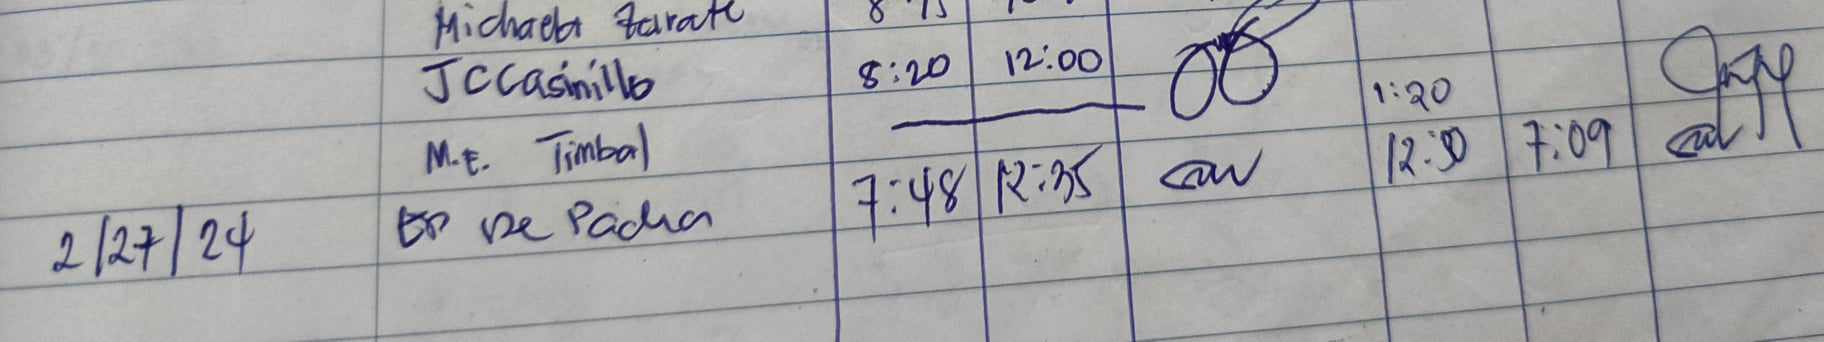 Michaela Zarate
JCCasinillo 8:20 12:00 1:20
M.E. Timbal
2/27/24 De Padua 7:48 12:35 12:50 7:09